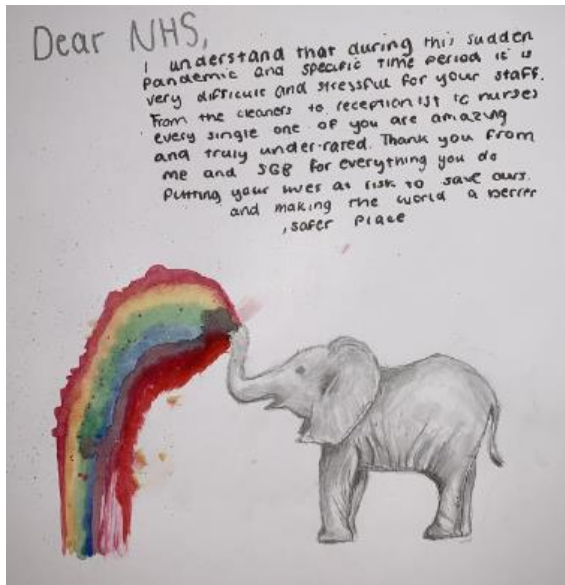 Dear NHS,
I understand that during this sudden
Pandemic and specific time period it is
very difficult and stressful for your staff.
From the cleaners to receptionist to nurses
every single one of you are amazing
and truly under-rared. Thank you from
me and SGB for everything you do
Putting your lives at risk to save ours.
and making the world a better
, safer place